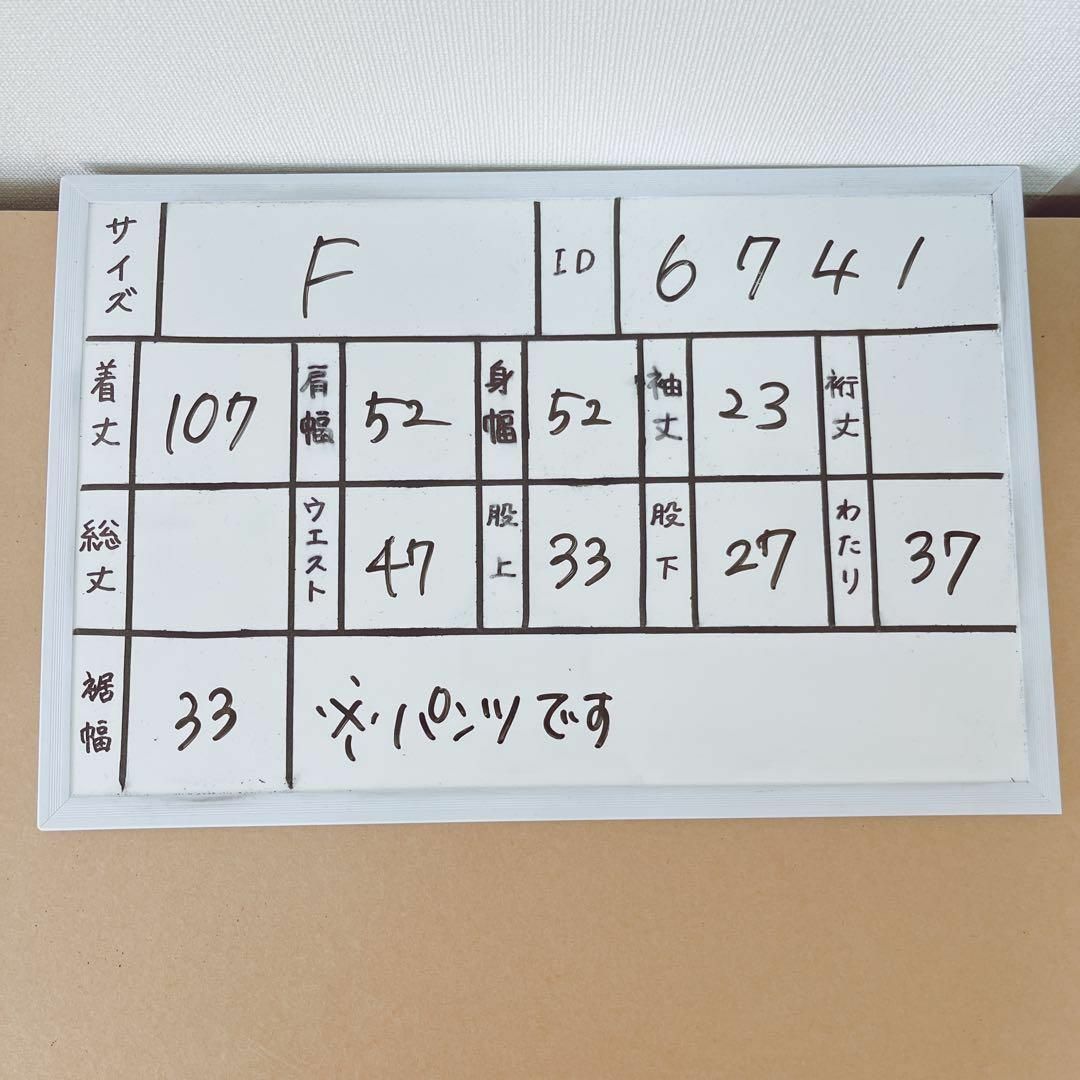 サイズ F ID 6741
着丈 107 肩幅 52 身幅 52 袖丈 23 裄丈
総丈 ウエスト 47 股上 33 股下 27 わたり 37
裾幅 33 ※パンツです